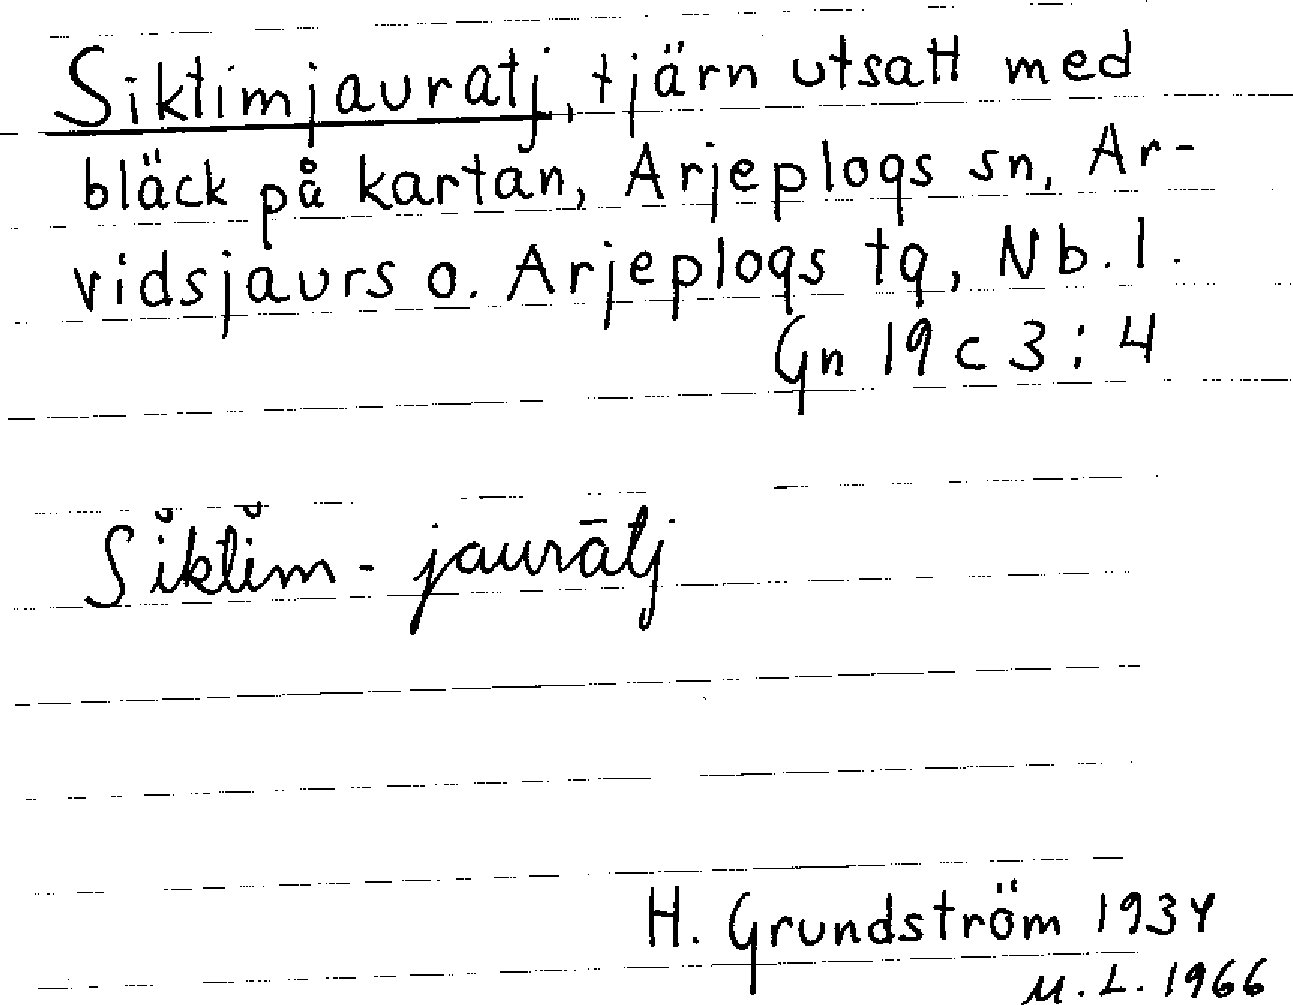 Siktimjauratj, tjärn utsatt med
bläck på kartan, Arjeplogs sn, Ar-
vidsjaurs o. Arjeplogs tg, Nb. l.
Gn 19 c 3:4
Sĭktĭm-jaurātj
H. Grundström 1934
M. L. 1966